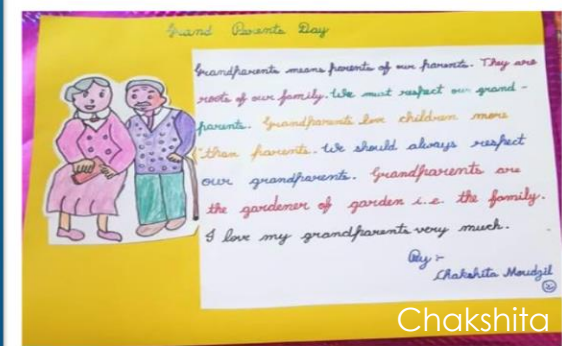 Grand Parents Day
Grandparents means parents of our parents. They are
roots of our family. We must respect our grand -
parents. Grandparents love children more
than parents. We should always respect
our grandparents. Grandparents are
the gardener of garden i.e. the family.
I love my grandparents very much.
By :-
Chakshita Moudgil
2
Chakshita